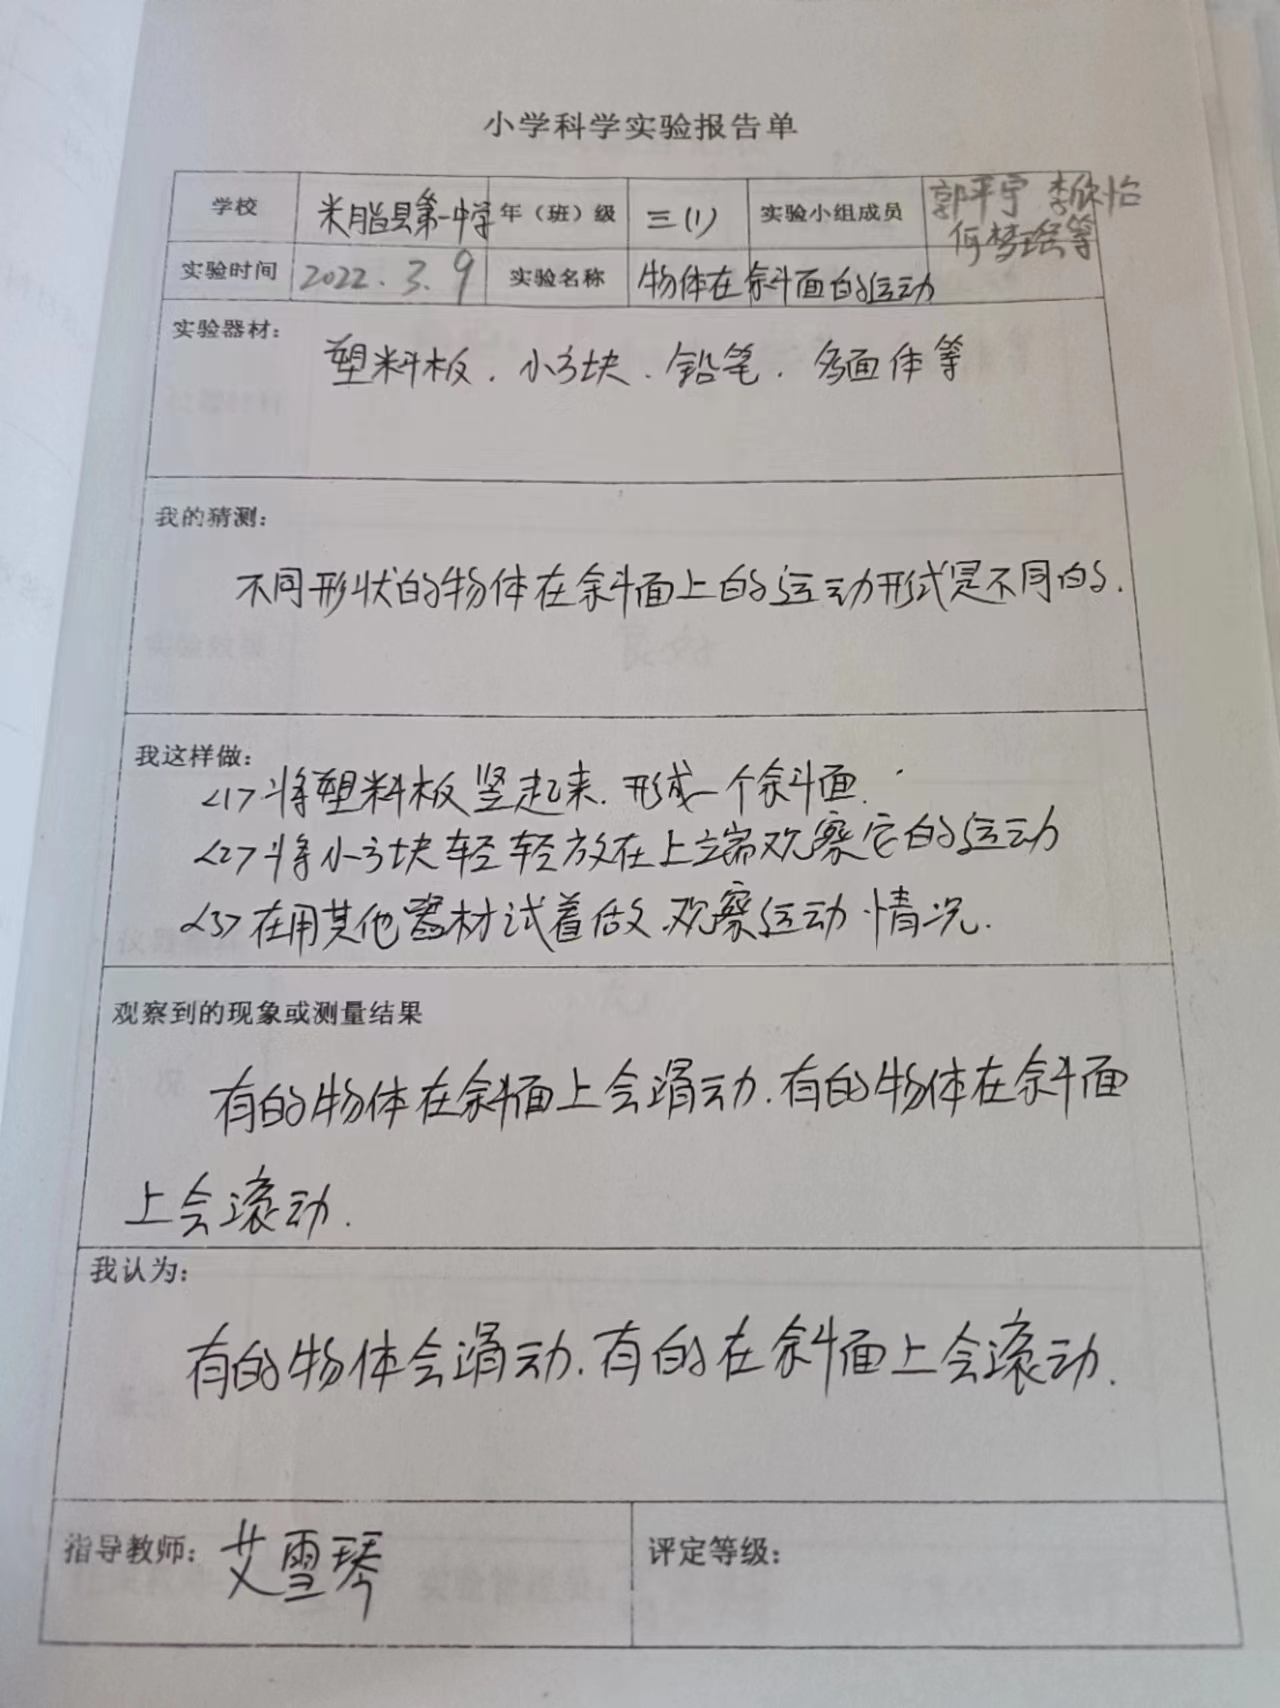 小学科学实验报告单
学校 米脂县第一中学 年（班）级 三(1) 实验小组成员 郭平宇 李欣怡
何梦瑶等
实验时间 2022.3.9 实验名称 物体在斜面的运动
实验器材：
塑料板．小方块．铅笔．多面体等
我的猜测：
不同形状的物体在斜面上的运动形式是不同的．
我这样做：
<1>将塑料板竖起来．形成一个斜面．
<2>将小方块轻轻放在上端观察它的运动
<3>在用其他器材试着做．观察运动情况．
观察到的现象或测量结果
有的物体在斜面上会滑动．有的物体在斜面
上会滚动．
我认为：
有的物体会滑动．有的在斜面上会滚动．
指导教师：艾雪琴 评定等级：